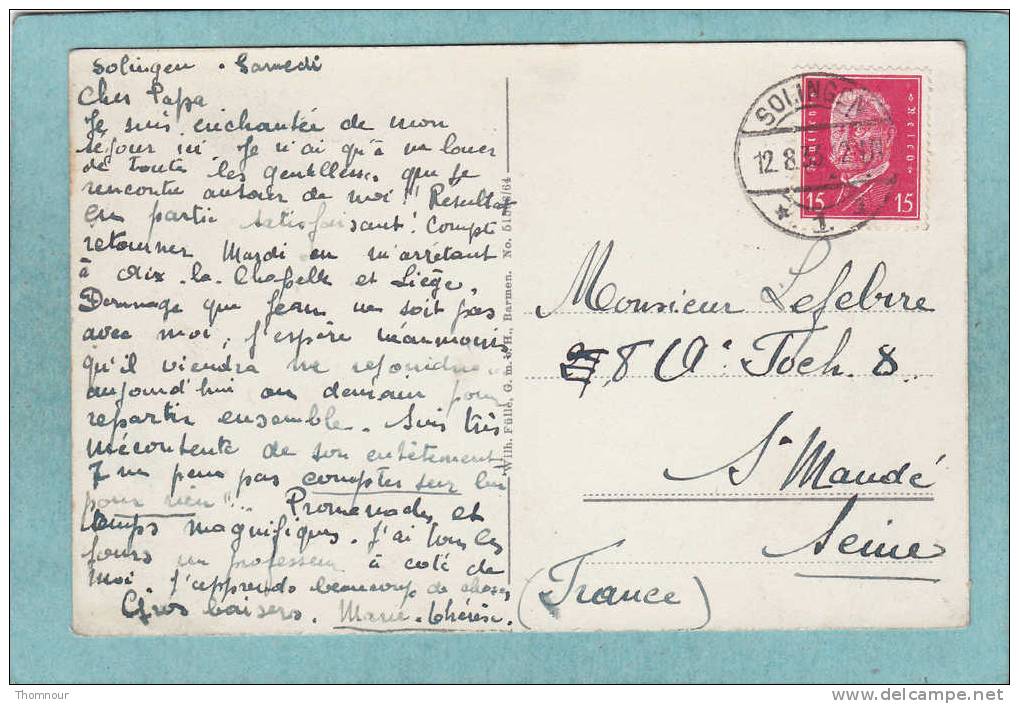 Solingen . Samedi
Cher Papa
Je suis enchantée de mon
séjour ici. Je n'ai qu'à me louer
de toutes les gentillesses que je
rencontre autour de moi ! Resultat
en partie satisfaisant ! Compte
retourner Mardi en m'arrêtant
à Aix-la-Chapelle et Liège,
Dommage que Jean ne soit pas
avec moi, j'espère néanmoins
qu'il viendra me rejoindre
aujourd'hui ou demain pour
repartir ensemble. Suis très
mécontente de son entêtement
on peut pas compter sur lui
pour rien !!... Promenades et
temps magnifiques. J'ai tous les
jours un professeur à coté de
moi. J'apprends beaucoup de choses
Gros baisers. Marie-Thérèse.
Wilh. Fülle, G. m. b. H., Barmen. No. 51
/64
SOLINGEN
12.8.33
1.
15 15
Monsieur Lefebvre
8 Foch. 8
St Mandé
Seine
(France)
Thomnour
delcampe.net